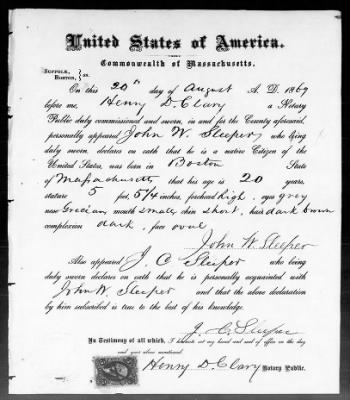 United States of America.
Commonwealth of Massachusetts.
SUFFOLK,
BOSTON, } ss.
On this 20th day of August A. D. 1869
before me, Henry D. Clary a Notary
Public duly commissioned and sworn, in and for the County aforesaid,
personally appeared John W. Sleeper who being
duly sworn, declares on oath that he is a native Citizen of the
United States, was born in Boston State
of Massachusetts that his age is 20 years,
stature 5 feet, 5 1/4 inches, forehead high, eyes grey
nose Grecian mouth small chin short, hair dark brown
complexion dark, face oval
John W. Sleeper
Also appeared J. C. Sleeper who being
duly sworn declares on oath that he is personally acquainted with
John W. Sleeper and that the above declaration
by him subscribed is true to the best of his knowledge.
J. C. Sleeper
In Testimony of all which, I hereunto set my hand and seal of office on the day
and year above mentioned.
Henry D. Clary Notary Public.